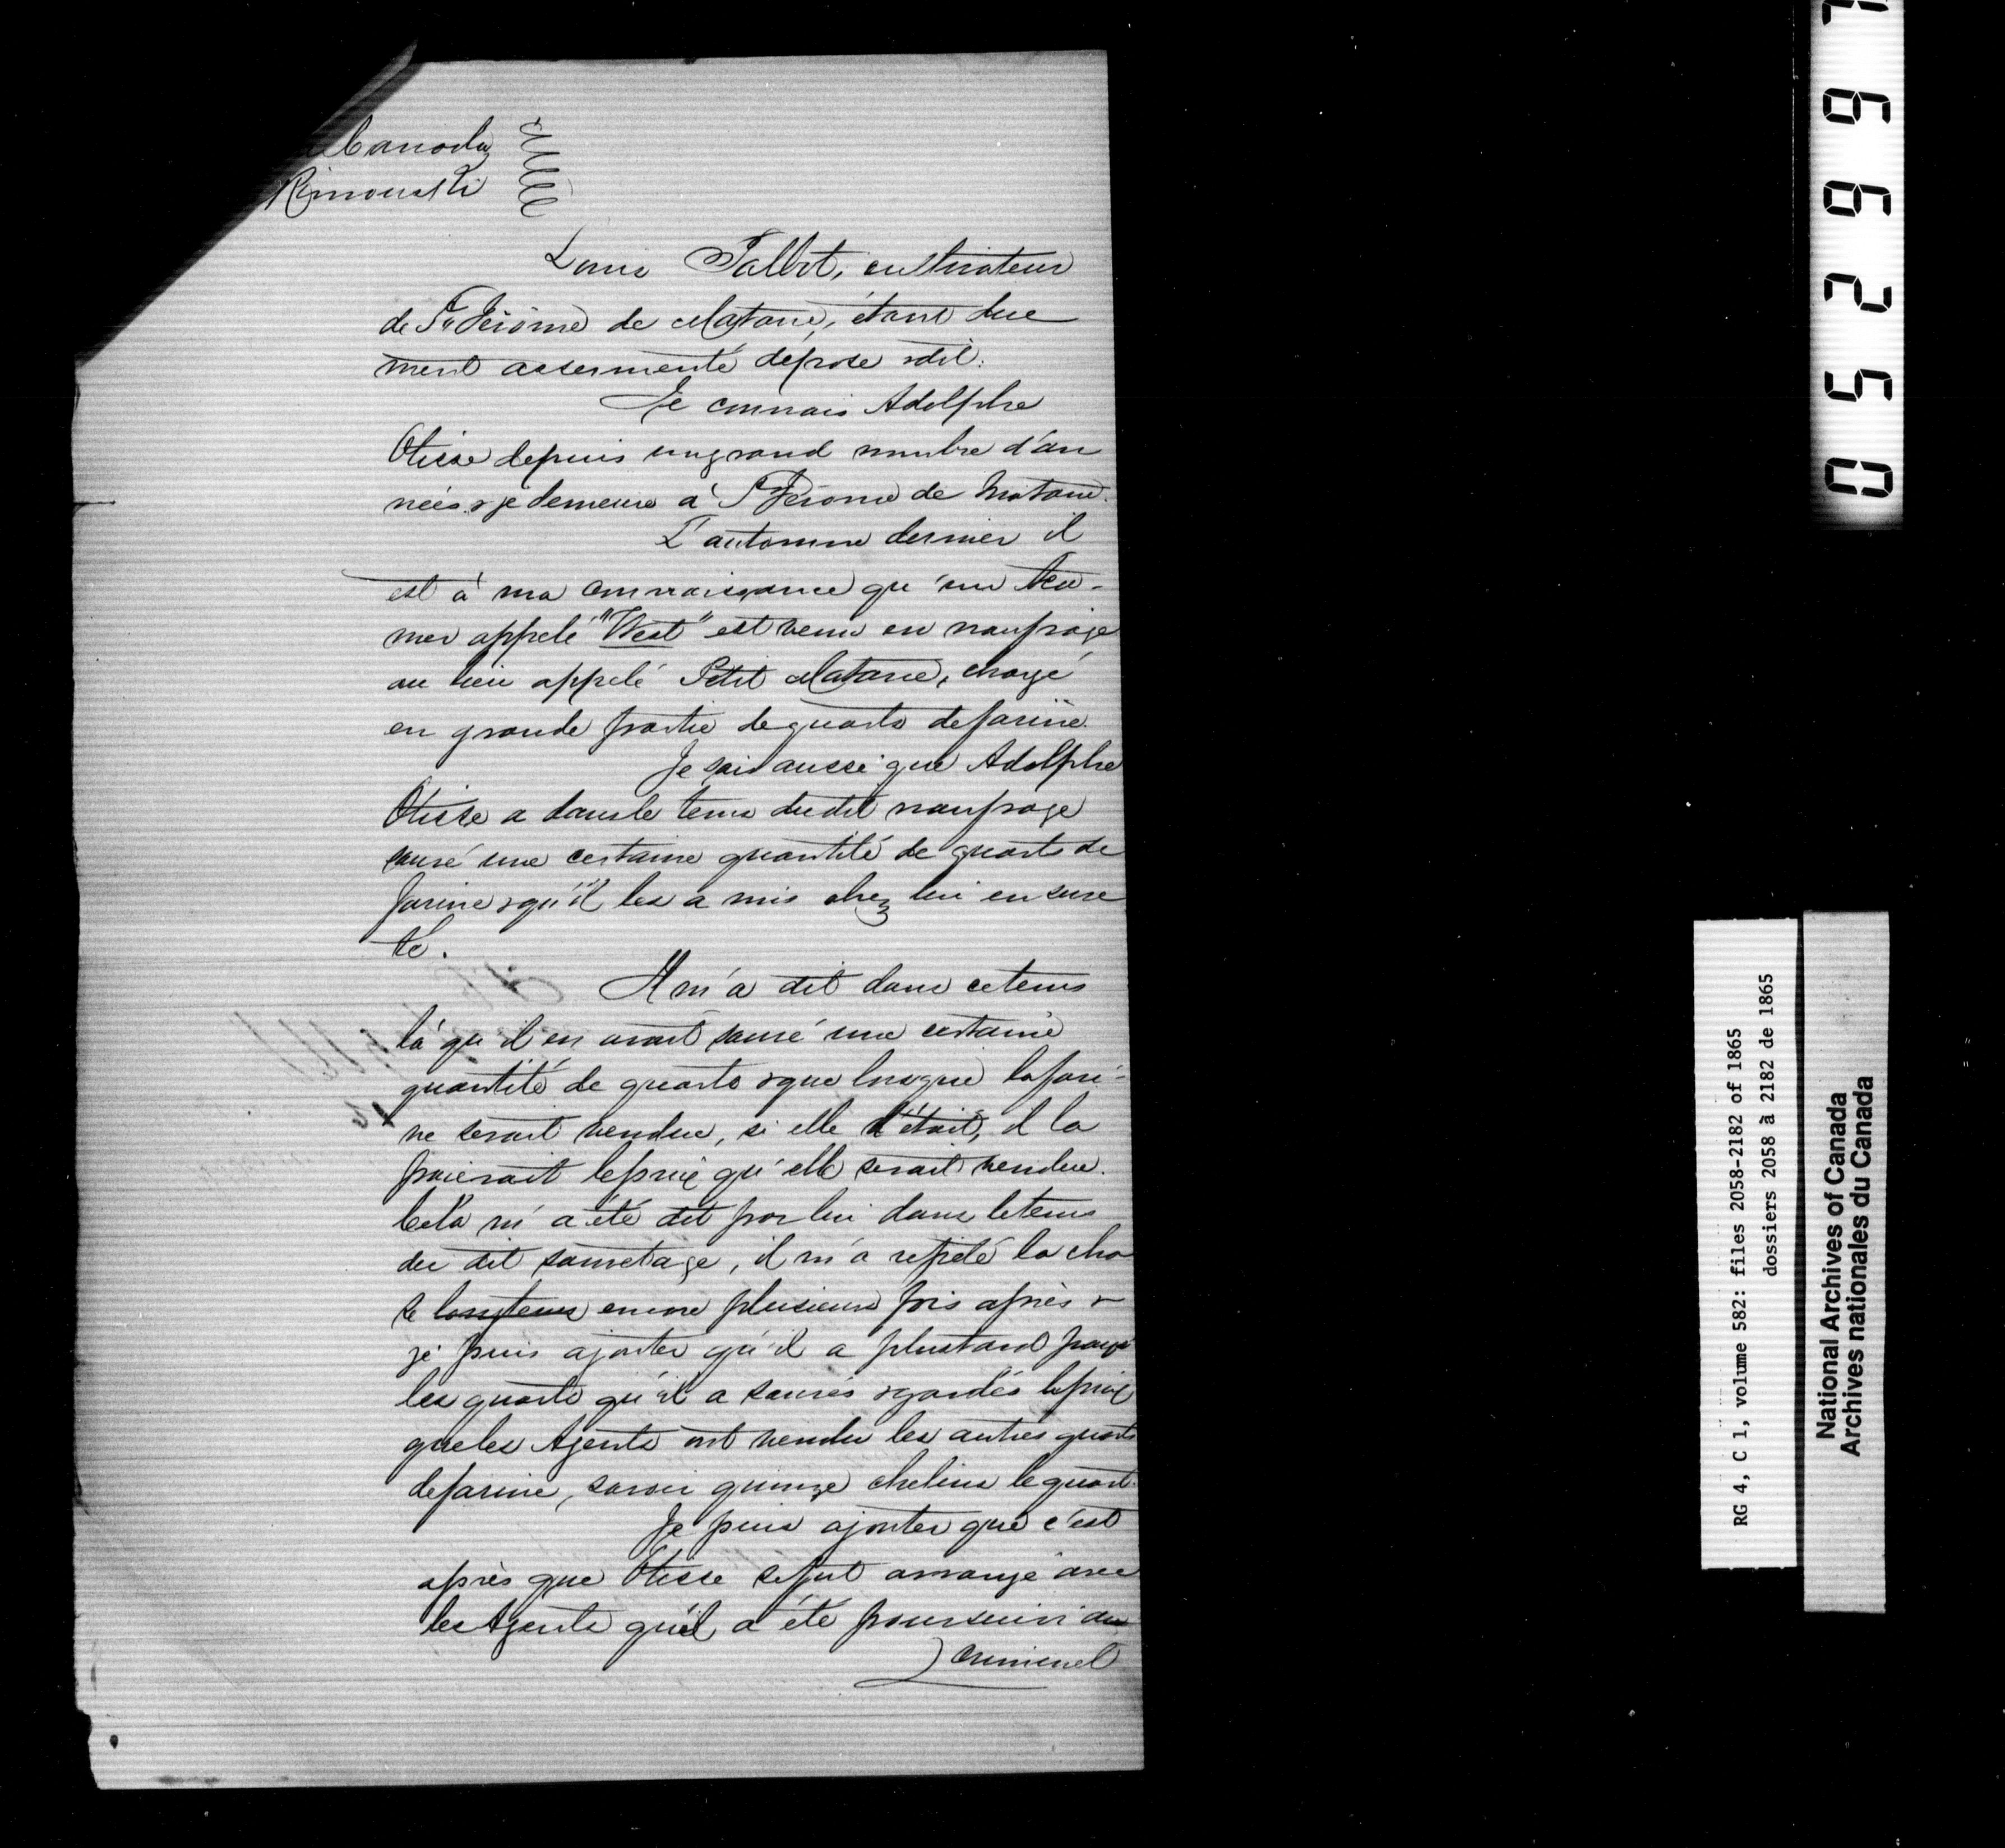 Canada
Rimouski
Louis Talbot, cultivateur
de St Jérôme de Matane, étant due
ment assermenté dépose & dit:
Je connais Adolphe
Otisse depuis un grand nombre d'an
nées & je demeure à St Jérome de Matane.
L'automne dernier il
est à ma connaissance qu'un stea-
mer appelé "West" est venu en naufrage
au lieu appelé Petit Matane, chargé
en grande partie de quarts de farine.
Je sais aussi que Adolphe
Otisse a dans le tems du dit naufrage
sauvé une certaine quantité de quarts de
farine & qu'il les a mis chez lui en sure
té.
Il m'a dit dans ce tems
là qu'il en avait sauvé une certaine
quantité de quarts & que lorsque la fari-
ne serait vendue, si elle l'était, il la
paierait le prix qu'elle serait vendue.
Cela m'a été dit par lui dans le tems
du dit sauvetage, il m'a repété la cho
se longtems encore plusieurs fois après &
je puis ajouter qu'il a plustard payé
les quarts qu'il a sauvés & gardés le prix
que les Agents ont vendu les autres quarts
de farine, savoir quinze chelins le quart.
Je puis ajouter que c'est
après que Otisse se fut arrangé avec
les Agents qu'il a été poursuivi au
criminel
05266
RG 4, C 1, volume 582: files 2058-2182 of 1865
dossiers 2058 à 2182 de 1865
National Archives of Canada
Archives nationales du Canada